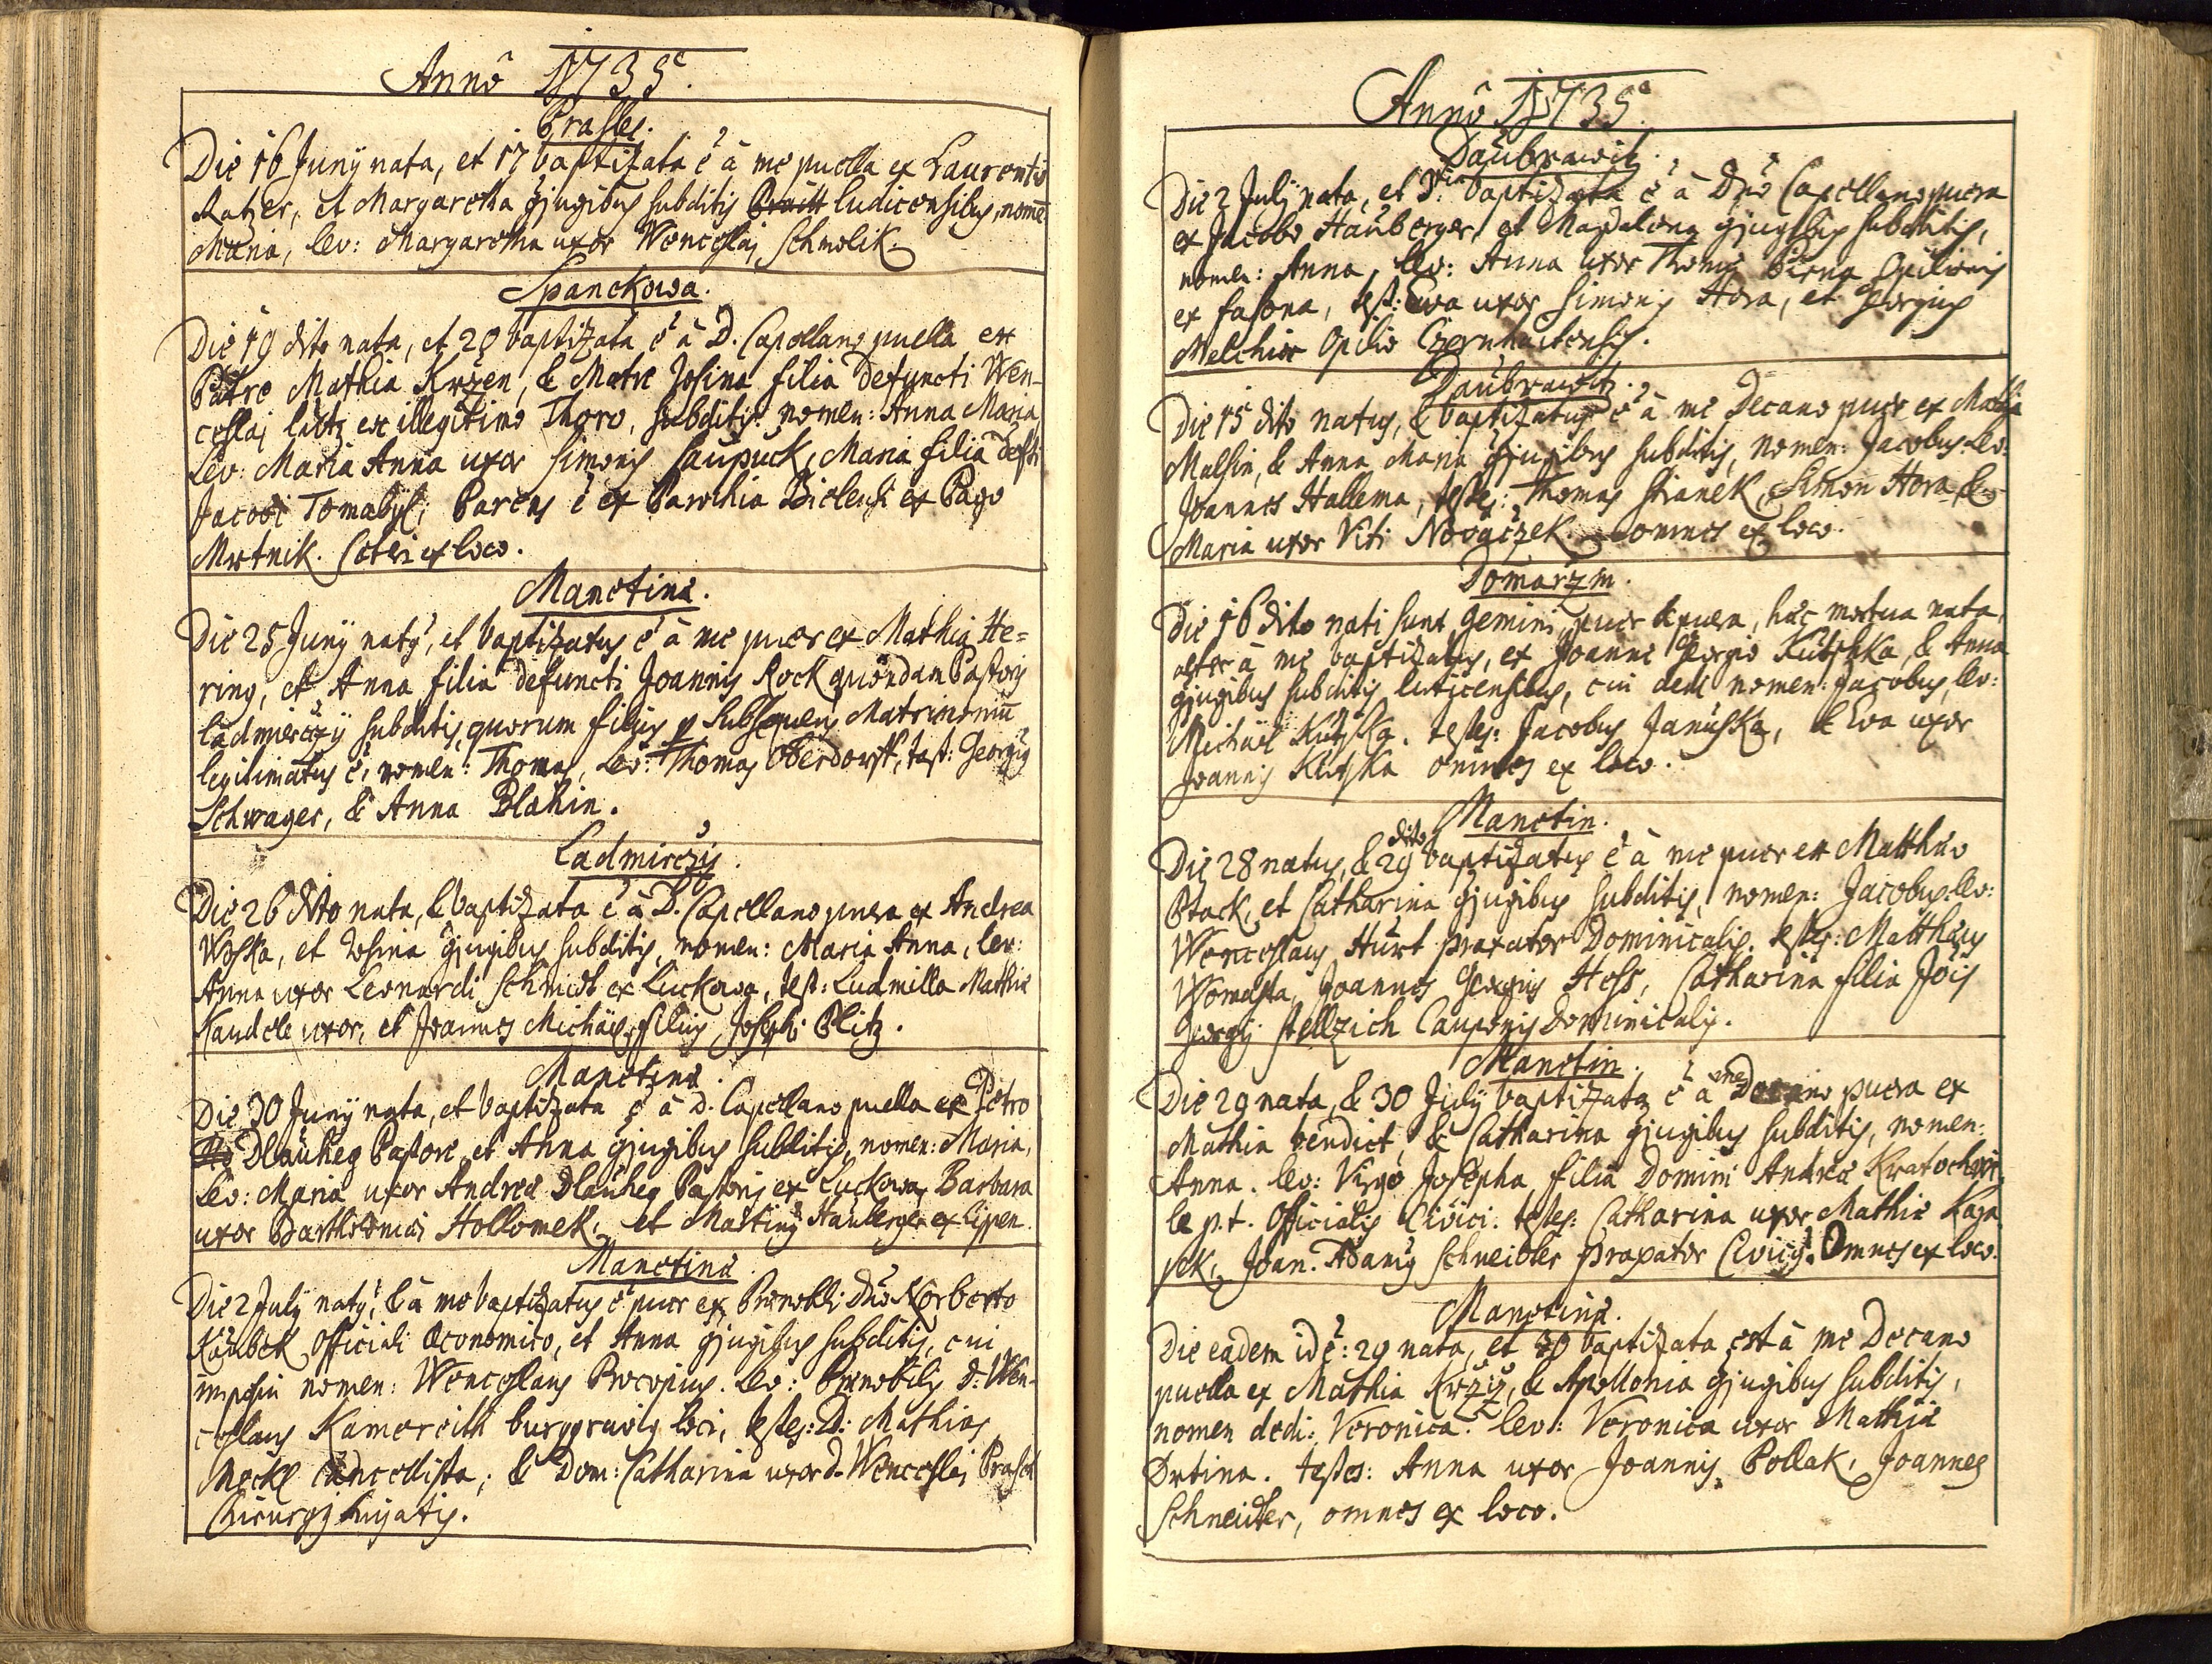 Annô 1735.
Prasles.
Die 16 Junÿ nata, et 17 baptizata ē â me puella ex Laurentio
Ratzer, et Margaretha ɔjugibus subditis ludicensibus, nomē
Maria, lev: Margaretha uxor Wenceslaj Schmolik.
Spanckowa.
Die 19 dito nata, et 20 baptizata ē â D. Capellano puella ex
Patre Mathia Krzen, & Matre Rosina filia defuncti Wen-
ceslaj Lütz ex illegitimo Thoro, subditis. nomen: Anna Maria,
Lev: Maria Anna uxor Simonis Caupuck, Maria filia defti
Jacobi Tomabyl; Parens ē ex Parochia Bielensi ex Pago
Mrtnik. Caeteri ex loco.
Manetinæ.
Die 25 Junÿ naty, et baptizatus ē â me puer ex Mathia He-
ring, et Anna filia defuncti Joannis Rock quondam Pastoris
Ladmierzÿ subditis, quorum filius p subsequens Matrimoniū
legitimatus ē, nomen: Thomas, Lev: Thomas Oberdorff, test: Georgiy
Schwager, & Anna Blahin.
Ladmirczÿ.
Die 26 dito nata, & baptizata ē â D. Capellano puera ex Andrea
Woska, et Rosina ɔjugibus subditis, nomen: Maria Anna, lev:
Anna uxor Leonardi Schmidt ex Luckowa, test: Ludmilla Mathiæ
Kandele uxor, et Joannes Michäel filius Josephi Blitz.
Manetinæ.
Die 30 Junÿ nata, et baptizata ē â D. Capellano puella ex Petro
Dlauheg Pastore, et Anna ɔjugibus subditis, nomen: Maria,
Lev: Maria uxor Andreæ Dlauheg Pastoris ex Luckowa, Barbara
uxor Bartholomæi Hollomek, et Martiny Hauberger ex Lippen.
Manetinæ
Die 2 Julÿ naty, & â me baptizatus ē puer ex Prænobli Dno Norberto
Kaubek Officiali Œconomico, et Anna ɔjugibus subditis, cui
imposui nomen: Wenceslaus Procopius. Lev: Prænobilis D: Wen-
ceslaus Kamereith burggravig loci, testes: D: Mathias
Meckl Cancellista; & Dom: Catharina uxor D. Wenceslaj Prasch
Chirurgj hujatis.
Annô 1735.
Daubrawitz.
Die 2 Julÿ nata, et 3tia baptizata ē â Dno Capellano puera
ex Jacobo Hauberger, et Magdalena ɔjugibus subditis,
nomen: Anna, lev: Anna uxor Thomæ Pirna Opilionis
ex Lasona, test: Eva uxor Simonis Hora, et Georgius
Melchior Opilio Czernhaitensis.
Daubrawitz.
Die 15 dito natus, & baptizatus ē â me Decano puer ex Mathia
Malsin, & Anna Maria ɔjugibus subditis, nomen: Jacobus. Lev:
Joannes Hallema, testes: Thomas Stranek, Simon Hora, &
Maria uxor Viti Novaczek omnes ex loco.
Domarzin.
Die 16 dito nati sunt gemini, puer & puera, hæc mortua nata,
alter â me baptizatus, ex Joanne Georgio Kutzka, & Anna
ɔjugibus subditis luticensibus, cui dedi nomen: Jacobus, lev:
Michäel Kutzka. testes: Jacobus Januska, & Eva uxor
Joannis Kutzka omnes ex loco.
Manetin.
Die 28 natus, & 29 dito baptizatus ē â me puer ex Matthæo
Ptack, et Catharina ɔjugibus subditis, nomen: Jacobus. lev:
Wenceslaus Hurt praxator Dominicalis. testes: Matthæus
Womasta, Joannes Georgius Hess, Catharina filia Jōis
Georgÿ Stellzich Cauponis Dominicalis.
Manetin.
Die 29 nata, & 30 Julÿ baptizata ē â me Decano puera ex
Mathia bendict, & Catharina ɔjugibus subditis, nomen:
Anna. lev: Virgo Josepha filia Domini Andreæ Kratochwi-
le p.t. Officialis Civici. testes: Catharina uxor Mathiæ Kaza
pek, Joan. Adamy Schneider praxator Civicy. Omnes ex loco.
Manetinæ.
Die eadem id ē: 29 nata, et 30 baptizata est â me Decano
puella ex Mathia Krziz, & Apollonia ɔjugibus subditis,
nomen dedi: Veronica. lev: Veronica uxor Mathiæ
Drtina. testes: Anna uxor Joannis Pollak, Joannes
Schneider, omnes ex loco.